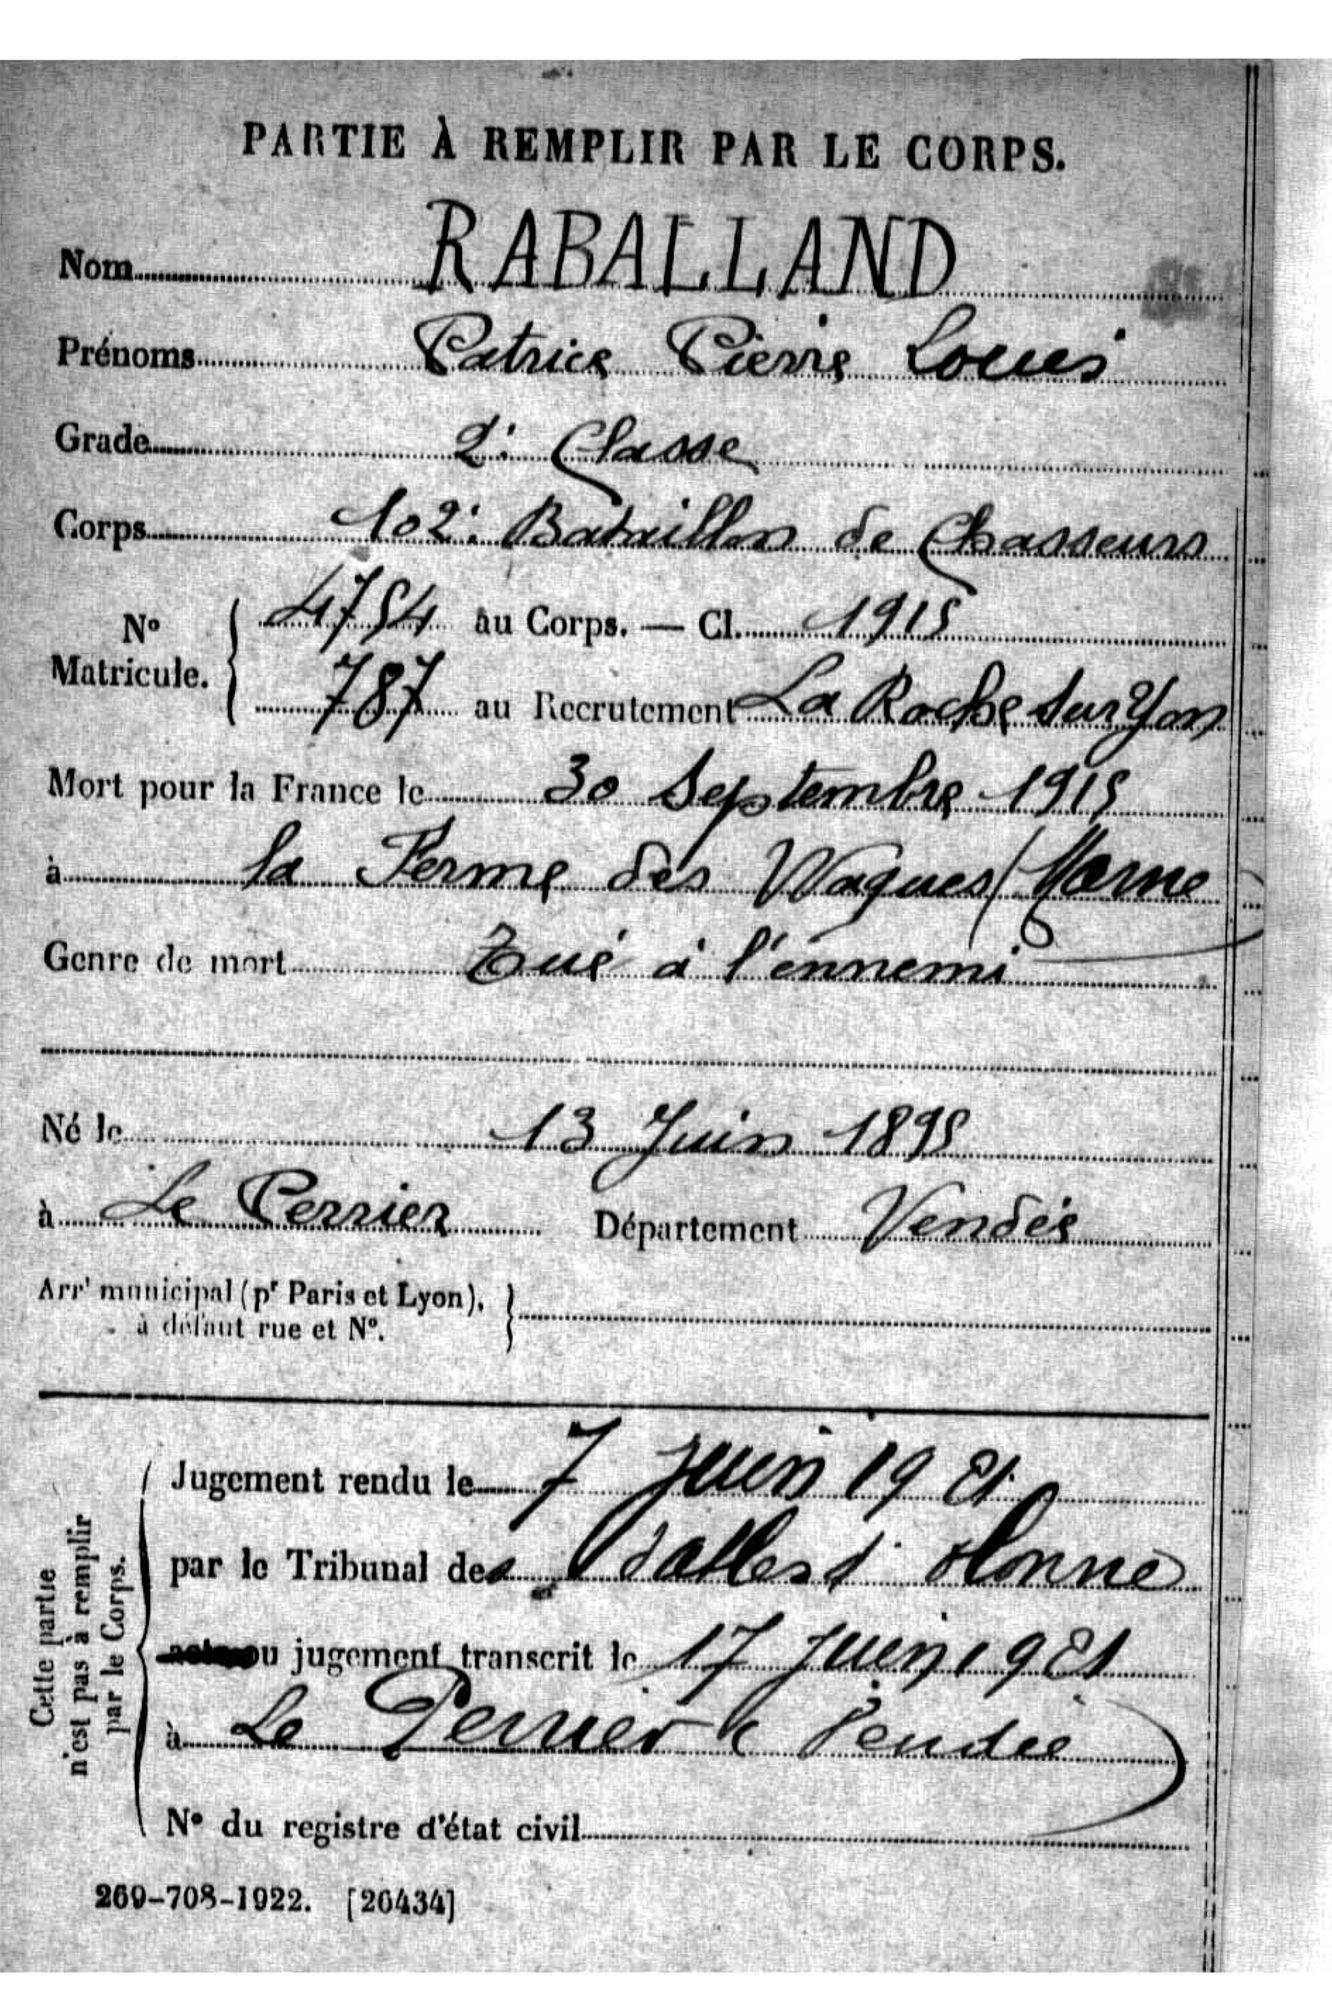 PARTIE À REMPLIR PAR LE CORPS.
Nom RABALLAND
Prénoms Patrice Pierre Louis
Grade 2e Classe
Corps 102e Bataillon de Chasseurs
N° Matricule. 4754 au Corps. — Cl. 1915
787 au Recrutement La Roche sur Yon
Mort pour la France le 30 Septembre 1915
à la Ferme des Waques (Marne
Genre de mort Tué à l'ennemi
Né le 13 Juin 1895
à Le Perrier Département Vendée
Arrt municipal (pr Paris et Lyon),
à défaut rue et N°.
Cette partie
n'est pas à remplir
par le Corps.
Jugement rendu le 7 juin 1921
par le Tribunal des Sables d'Olonne
ou jugement transcrit le 17 juin 1921
à Le Perrier (Vendée)
N° du registre d'état civil
269-708-1922. [26434]